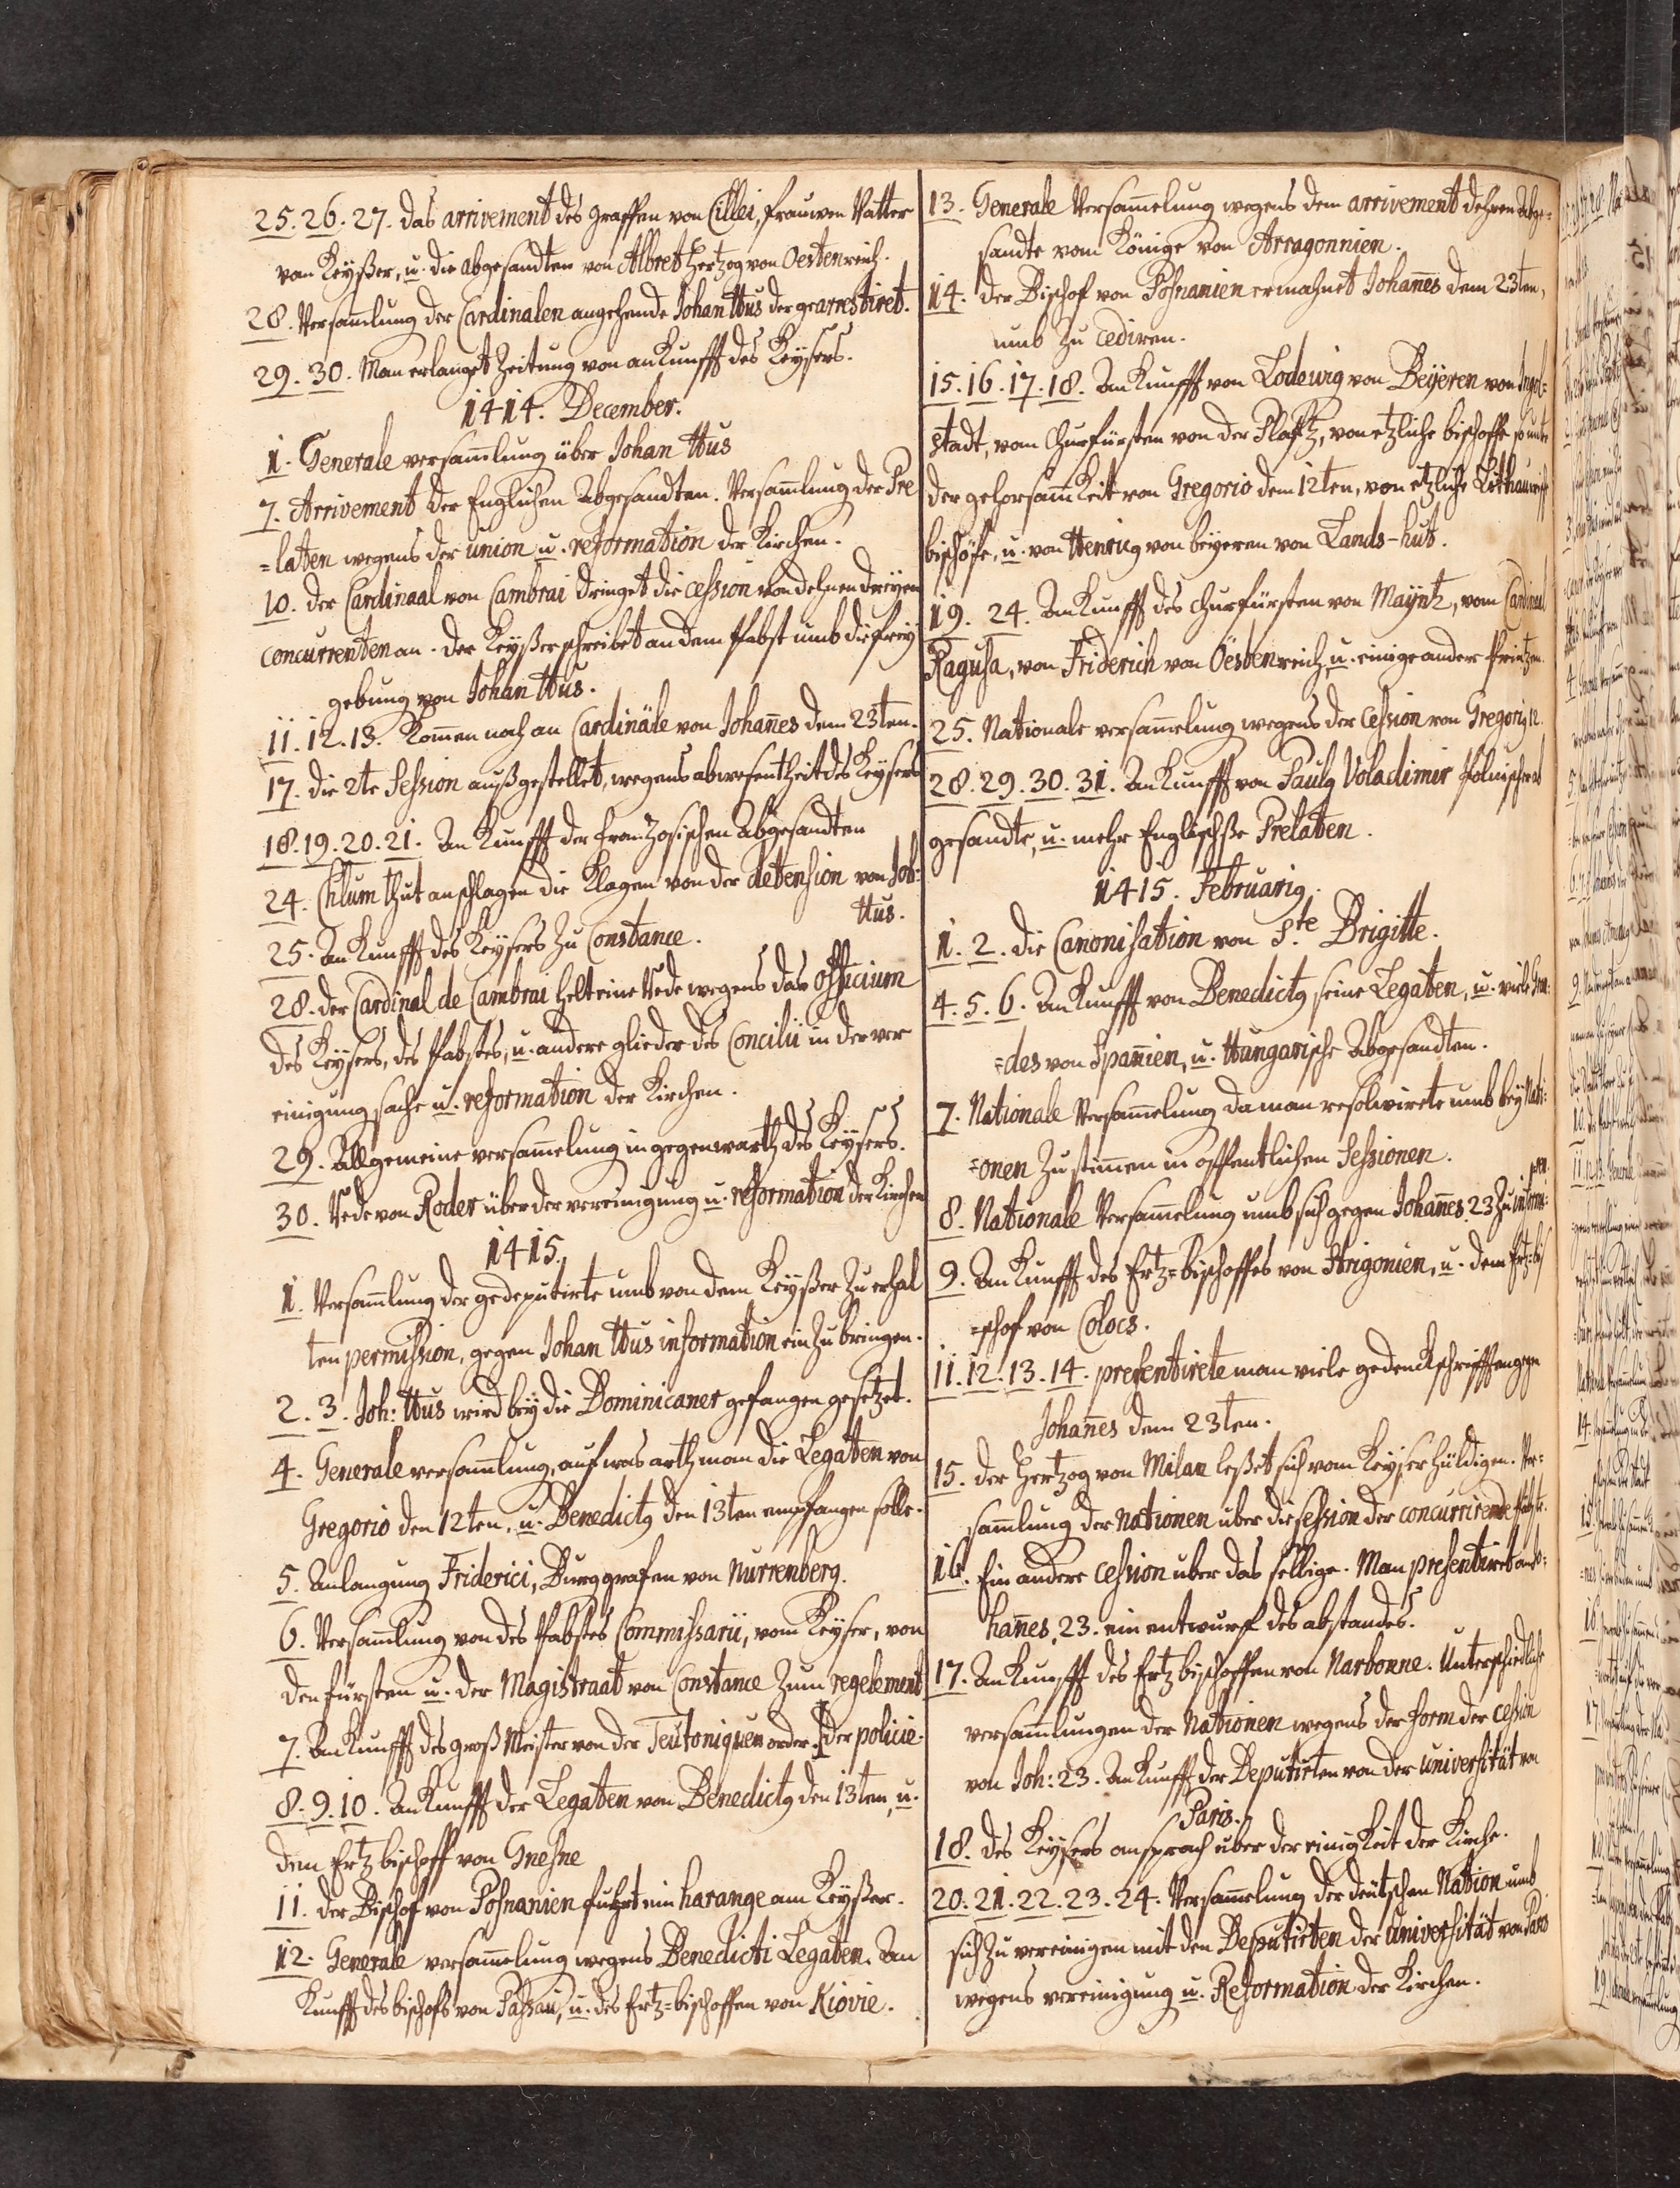 25. 26. 27. das arrivement des graffen von Cillei, frauwen Vatter
vom Keyßer, u. die abgesandten von Albret Hertzog von Oestenreich.
28. Versam̄lung der Cardinalen angehende Johan Hus der gearrestiret.
29. 30. Man erlanget Zeitung von ankunfft des Keysers.
1414. December.
1. Generale versam̄lung über Johan Hus
7. Arrivement der Englichen Abgesandten. Versam̄lung der Pre
=laten wegens der union u. reformation der Kirchen.
10. der Cardinaal von Cambrai dringet die cession von dehnen dreyen
concurrenten an. der Keyßer schreibet an dem Pabst umb die frey
gebung von Johan Hus.
11. 12. 13. Kom̄en noch an Cardinäle von Johan̄es dem 23ten.
17. die 2te Session auß gestellet, wegens abwesentheit des Keysers
18. 19. 20. 21. Ankunfft der franzosischen Abgesandten
24. Chlum thut anschlagen die Klagen von der detension von Joh:
Hus.
25. Ankunfft des Keysers zu Constance.
28. der Cardinal de Cambrai helt eine Rede wegens das officium
des Keysers, des Pabstes, u. andere glieder des Concilii in der ver
einigung sache u. reformation der Kirchen.
29. Allgemeine versam̄elung in gegenwarth des Keysers.
30. Rede von Roder über der vereinigung u. reformation der Kirchen
1415.
1. Versam̄lung der gedeputirte umb von dem Keyßer zu erhal
ten permission, gegen Johan Hus information ein zu bringen.
2. 3. Joh: Hus wird bey die Dominicaner gefangen gesetzet.
4. Generale versam̄lung, auf was arth man die Legaten von
Gregorio den 12ten, u. Benedictg den 13ten empfangen solle.
5. Anlangung Friderici, Burggrafen von Nurrenberg.
6. Versam̄lung von des Pabstes Commissarii, vom Keyser, von
den fürsten u. der Magistraat von Constance zum regelement
7. Ankunfft des groß Meister von der Teutoniquen order. [der policie.
8. 9. 10. Ankunfft der Legaten von Benedictg den 13ten, u.
dem Ertzbischoff von Gnesne
11. der Bischof von Posnanien fuhrt ein harange am Keyßer.
12. Generale versam̄elung wegens Benedicti Legaten. An
Kunfft des bischofs von Passau, u. des Ertz=bischoffen von Kiovie.
13. Generale Versam̄elung wegens dem arrivement dehren Abge=
sandte vom Könige von Arragonnien.
14. der Bischof von Posnanien ermahnet Johan̄es dem 23ten,
umb zu cediren.
15. 16. 17. 18. Ankunfft von Lodewig von Beyeren von Ingol=
stadt, vom Churfürsten von der Plaffz, von etzliche bischoffe so unte
der gehorsam̄keit von Gregorio dem 12ten, von etzliche
bischöfe, u. von Henricg von beyeren von Lands-hut.
19. 24. Ankunfft des Churfürsten von Mayntz, vom Cardinal
Ragusa, von Friderich von Öestenreich, u. einige ander Printzen.
25. Nationale versam̄elung wegens der Cession von Gregorig 12.
28. 29. 30. 31. Ankunfft von Paulg Voladimir Polnischen ab
gesandte, u. mehr Englischße Prelaten.
1415. Februarig.
1. 2. die Canonisation von Ste Brigitte.
4. 5. 6. Ankunfft von Benedictg seine Legaten, u. viele Gran=
=des von Span̄ien, u. Hungarische Abgesandten.
7. Nationale Versam̄elung da man resolvirete umb bey Nati=
=onen zu stim̄en in offentlichen Sessionen.
8. Nationale Versam̄elung umb sich gegen Johan̄es. 23 zu informi=
ren.
9. Ankunfft des Ertz=bischoffes von Strigonien, u. dem Ertz=bi
=schof von Colocs.
11. 12. 13. 14. presentirete man viele gedenckschrifften gegen
Johan̄es dem 23ten.
15. der Hertzog von Milan leßet sich vom Keyser huldigen. Ver=
sam̄lung der Nationen uber die session der concurrirende Päbste.
16. Ein andere cession uber das selbige. Man presentiret an Jo=
han̄es. 23. ein entwurf des abstandes.
17. Ankunfft des Ertzbischoffen von Narbonne. Unterschiedliche
versam̄lungen der Nationen wegens der form der cession
von Joh: 23. Ankunfft der Deputirten von der universität von
Paris.
18. des Keysers ansprach uber der einigkeit der Kirche.
20. 21. 22. 23. 24. Versam̄elung der deutschen Nation umb
sich zu vereinigen mit den Deputirten der universität von Paris
wegens vereinigung u. Reformation der Kirchen.